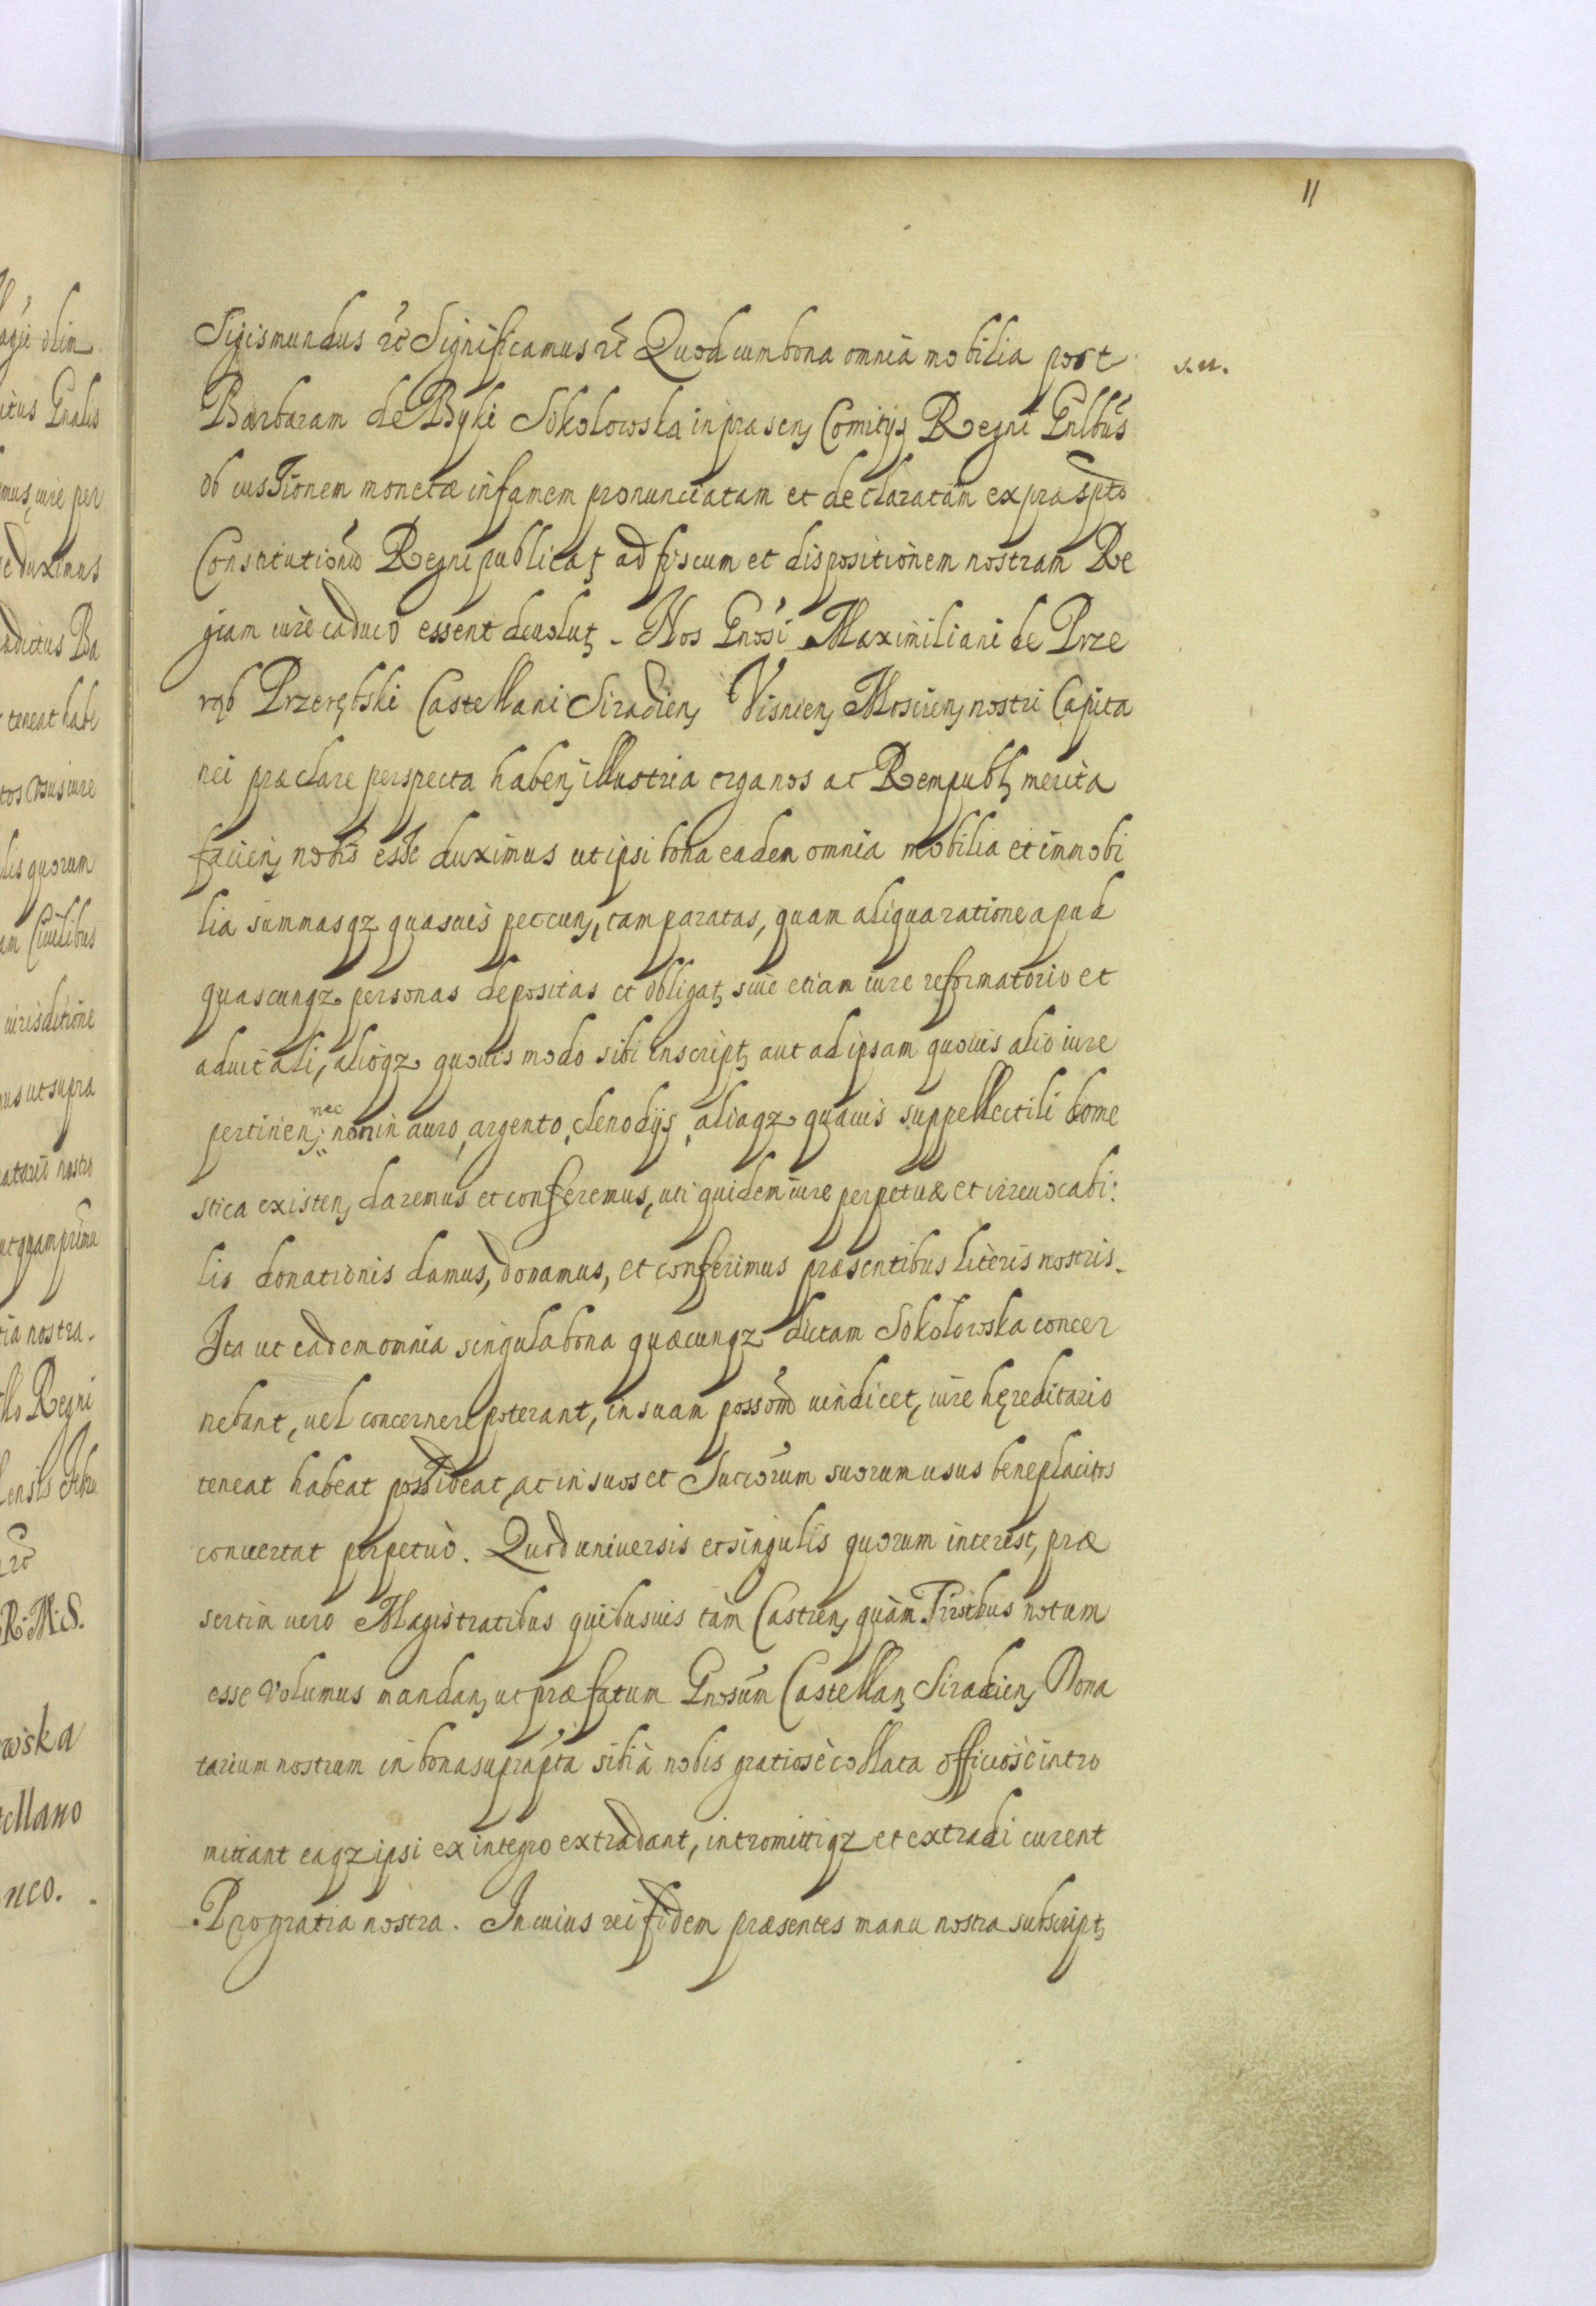 11
Sigismundus etc Significamus etc Quod cum bona omnia mobilia post
s. n.
Barbaram de Byki Sokolowska in præsen, Comitijs Regni Gnlbus
ob cussionem monetæ infamem pronunciatam et declaratam ex præspto
Constitutionũ Regni publicaʒ ad fiscum et dispositionem nostram Re
giam iure caduco essent deuolutʒ - Nos Gnosi Maximiliani de Prze
rąb Przerębski Castellani Siradien, Visnien, Moscien, nostri Capita
nei præclare perspecta haben, illustria erga nos ac Rempubl, merita
facien, nobis esse duximus ut ipsi bona eadem omnia mobilia et immobi
lia summasqz quasuis peccun, tam paratas, quam aliqua ratione apud
quascunqz personas depositas et obligat, siue etiam iure reformatorio et
aduitali, alioqz quouis modo sibi inscript, aut ad ipsam quouis alio iure
nec
pertinen, non in auro, argento, clenodijs, aliaqz quauis suppellectili dome
stica existen, daremus et conferemus, uti quidem iure perpetuæ et irreuocabi:
lis donationis damus, donamus, et conferimus præsentibus literis nostris.
Ita ut eadem omnia singula bona quæcunqz dictam Sokolowska concer
nebant, uel concernere poterant, in suam possõm uindicet, iure hęreditario
teneat habeat possideat, ac in suos et Sucrorum suorum usus beneplacitos
conuertat perpetuò. Quod uniuersis et singulis quorum interest, præ
sertim uero Magistratibus quibusuis tàm Castren, quàm Trrstbus notum
esse volumus mandan, ut præfatum Gnosum Castellan, Siradien, Dona
tarium nostrum in bona supraspta sibi à nobis gratiosè collata officiosè intro
mittant eaqz ipsi ex integro extradant, intromittiqz et extradi curent
Pro gratia nostra. In cuius rei fidem præsentes manu nostra subscript,